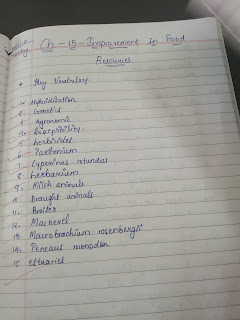 Ch - 15 - Improvement in Food
Resources
• Key Vocabulary.
1. Hybridization
2. Genetics
3. Agronomic
4. Susceptibility.
5. herbicides
6. Parthenium
7. Cyperinus rotundus
8 herbarium
9. Milch animals
10 Draught animals
11. Broiler
12. Mackerel
13 Macrobrachium rosenbergii
14. Peneaus monodon
15 estuaries